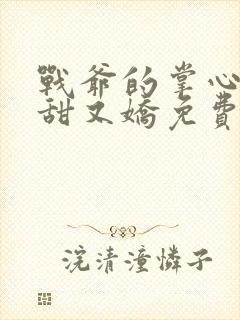 戰爺的掌心
甜又嬌免費
浣清潼憐子